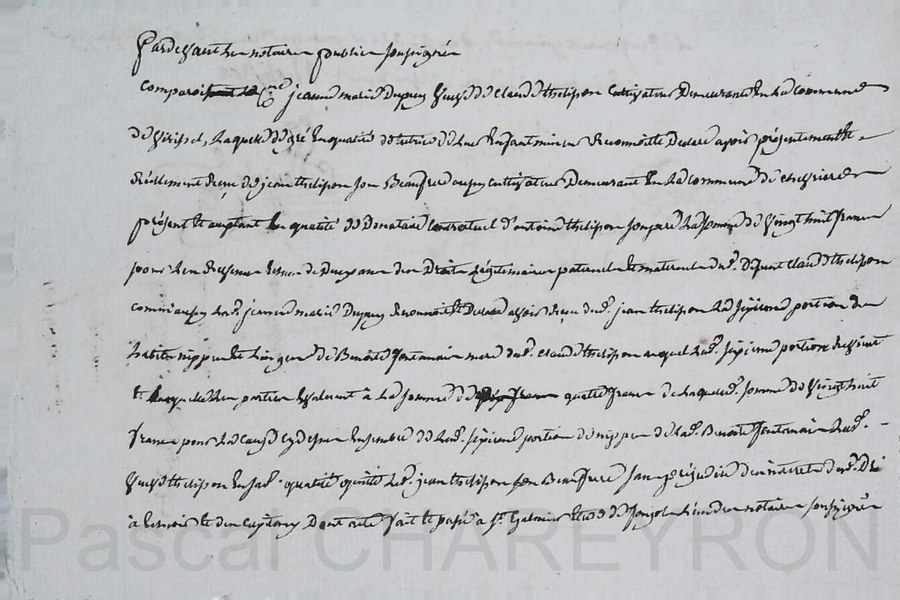 Pardevant le notaire public soussigné
comparoi Cne jeanne marie Dupuy veuve de claude thelipon cultivateur Demeurante en la commune
de laquelle de gré en qualité de tutrice de leur enfant mineur reconnoit et declare avoir présentement et
réellement reçu de jean thelipon son Beaufrere aussy cultivateur Demeurant en la commune de
présent et acceptant en qualité de Donataire contractuel d'antoine thelipon son pere la somme de vingt huit francs
pour des Droits légitimaires paternels et maternels dud. Defunt claude thelipon
comm'aussy lad. jeanne marie Dupuy reconnoit et declare avoir reçu dud. jean thelipon la sixieme portion des
habits nippes et linges de Benoite fontanais mere dud. claude thelipon auquel lad. sixieme portion
et laquelle les parties evaluent à la somme de quatre francs de laquelle somme de vingt huit
francs pour la cause cy dessus ensemble de lad. sixieme portion de nippes de lad. Benoite fontanais lad.
veuve thelipon en sad. qualité quitte led. jean thelipon son Beaufrere sans préjudice des interets
à et des capitaux Dont acte fait et passé à st. Galmier de notaire soussigné
Pascal CHAREYRON